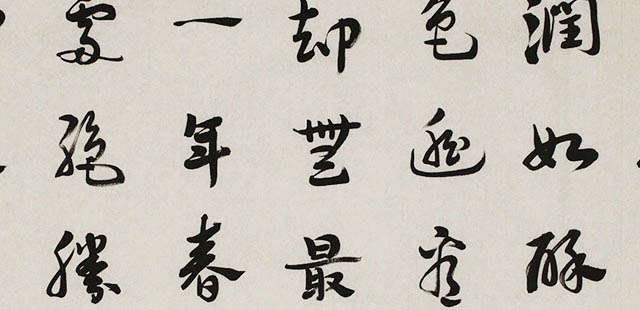 潤如酥
色遙看
却無最
一年春
處絕勝